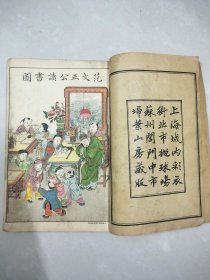 范文正公讀書圖
上海城內彩衣
街北市拋球場
蘇州閶門中市
埽葉山房藏版